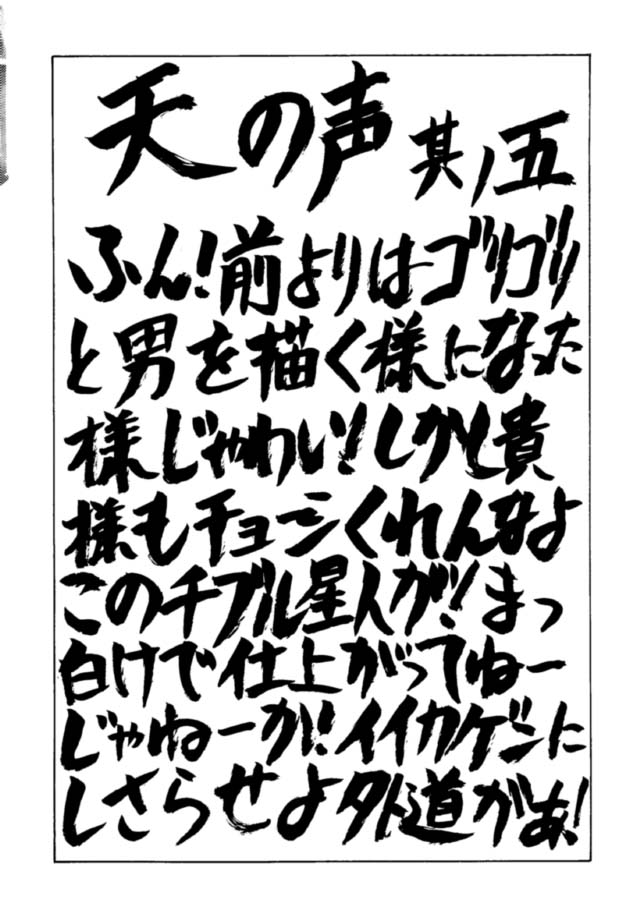 天の声 其ノ五
ふん!前よりはゴリゴリ
と男を描く様になった
様じゃわい!しかし貴
様もチョーシくれんなよ
このチブル星人が!まっ
白けで仕上がってねー
じゃねーか!イイカゲンに
しさらせよ外道がぁ!